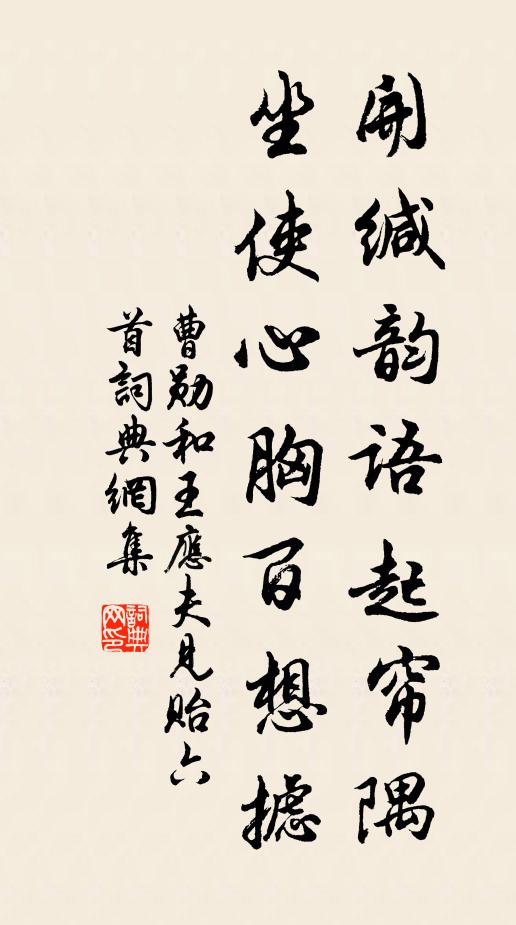 开缄韵语起帘隅
坐使心胸百想摅
曹勋和王應夫见贻六
首詞典網集
詞典
网印